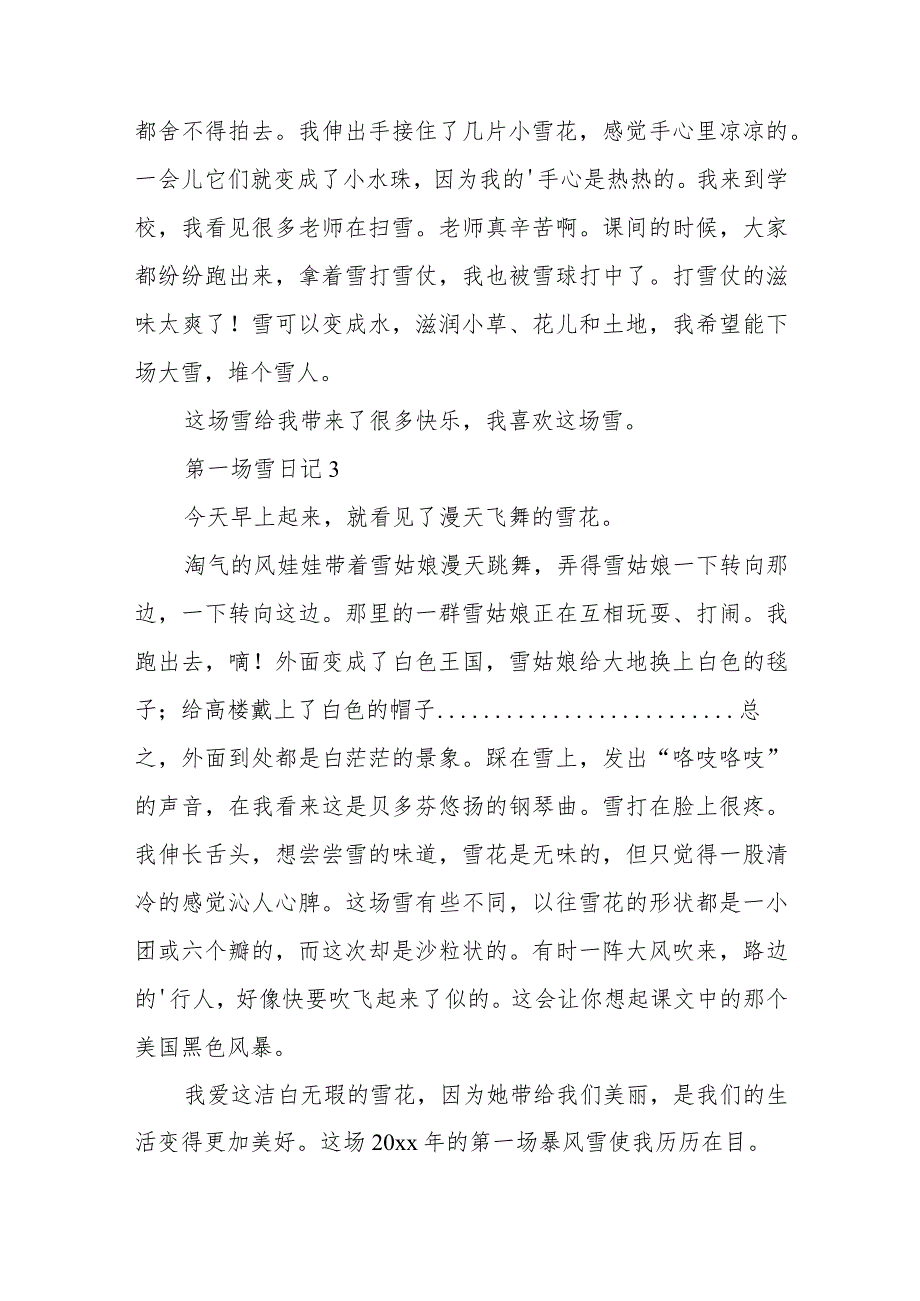 都舍不得拍去。我伸出手接住了几片小雪花，感觉手心里凉凉的。
一会儿它们就变成了小水珠，因为我的'手心是热热的。我来到学
校，我看见很多老师在扫雪。老师真辛苦啊。课间的时候，大家
都纷纷跑出来，拿着雪打雪仗，我也被雪球打中了。打雪仗的滋
味太爽了！雪可以变成水，滋润小草、花儿和土地，我希望能下
场大雪，堆个雪人。
这场雪给我带来了很多快乐，我喜欢这场雪。
第一场雪日记3
今天早上起来，就看见了漫天飞舞的雪花。
淘气的风娃娃带着雪姑娘漫天跳舞，弄得雪姑娘一下转向那
边，一下转向这边。那里的一群雪姑娘正在互相玩耍、打闹。我
跑出去，嘀！外面变成了白色王国，雪姑娘给大地换上白色的毯
子；给高楼戴上了白色的帽子..........................总
之，外面到处都是白茫茫的景象。踩在雪上，发出“咯吱咯吱”
的声音，在我看来这是贝多芬悠扬的钢琴曲。雪打在脸上很疼。
我伸长舌头，想尝尝雪的味道，雪花是无味的，但只觉得一股清
冷的感觉沁人心脾。这场雪有些不同，以往雪花的形状都是一小
团或六个瓣的，而这次却是沙粒状的。有时一阵大风吹来，路边
的'行人，好像快要吹飞起来了似的。这会让你想起课文中的那个
美国黑色风暴。
我爱这洁白无瑕的雪花，因为她带给我们美丽，是我们的生
活变得更加美好。这场20xx年的第一场暴风雪使我历历在目。